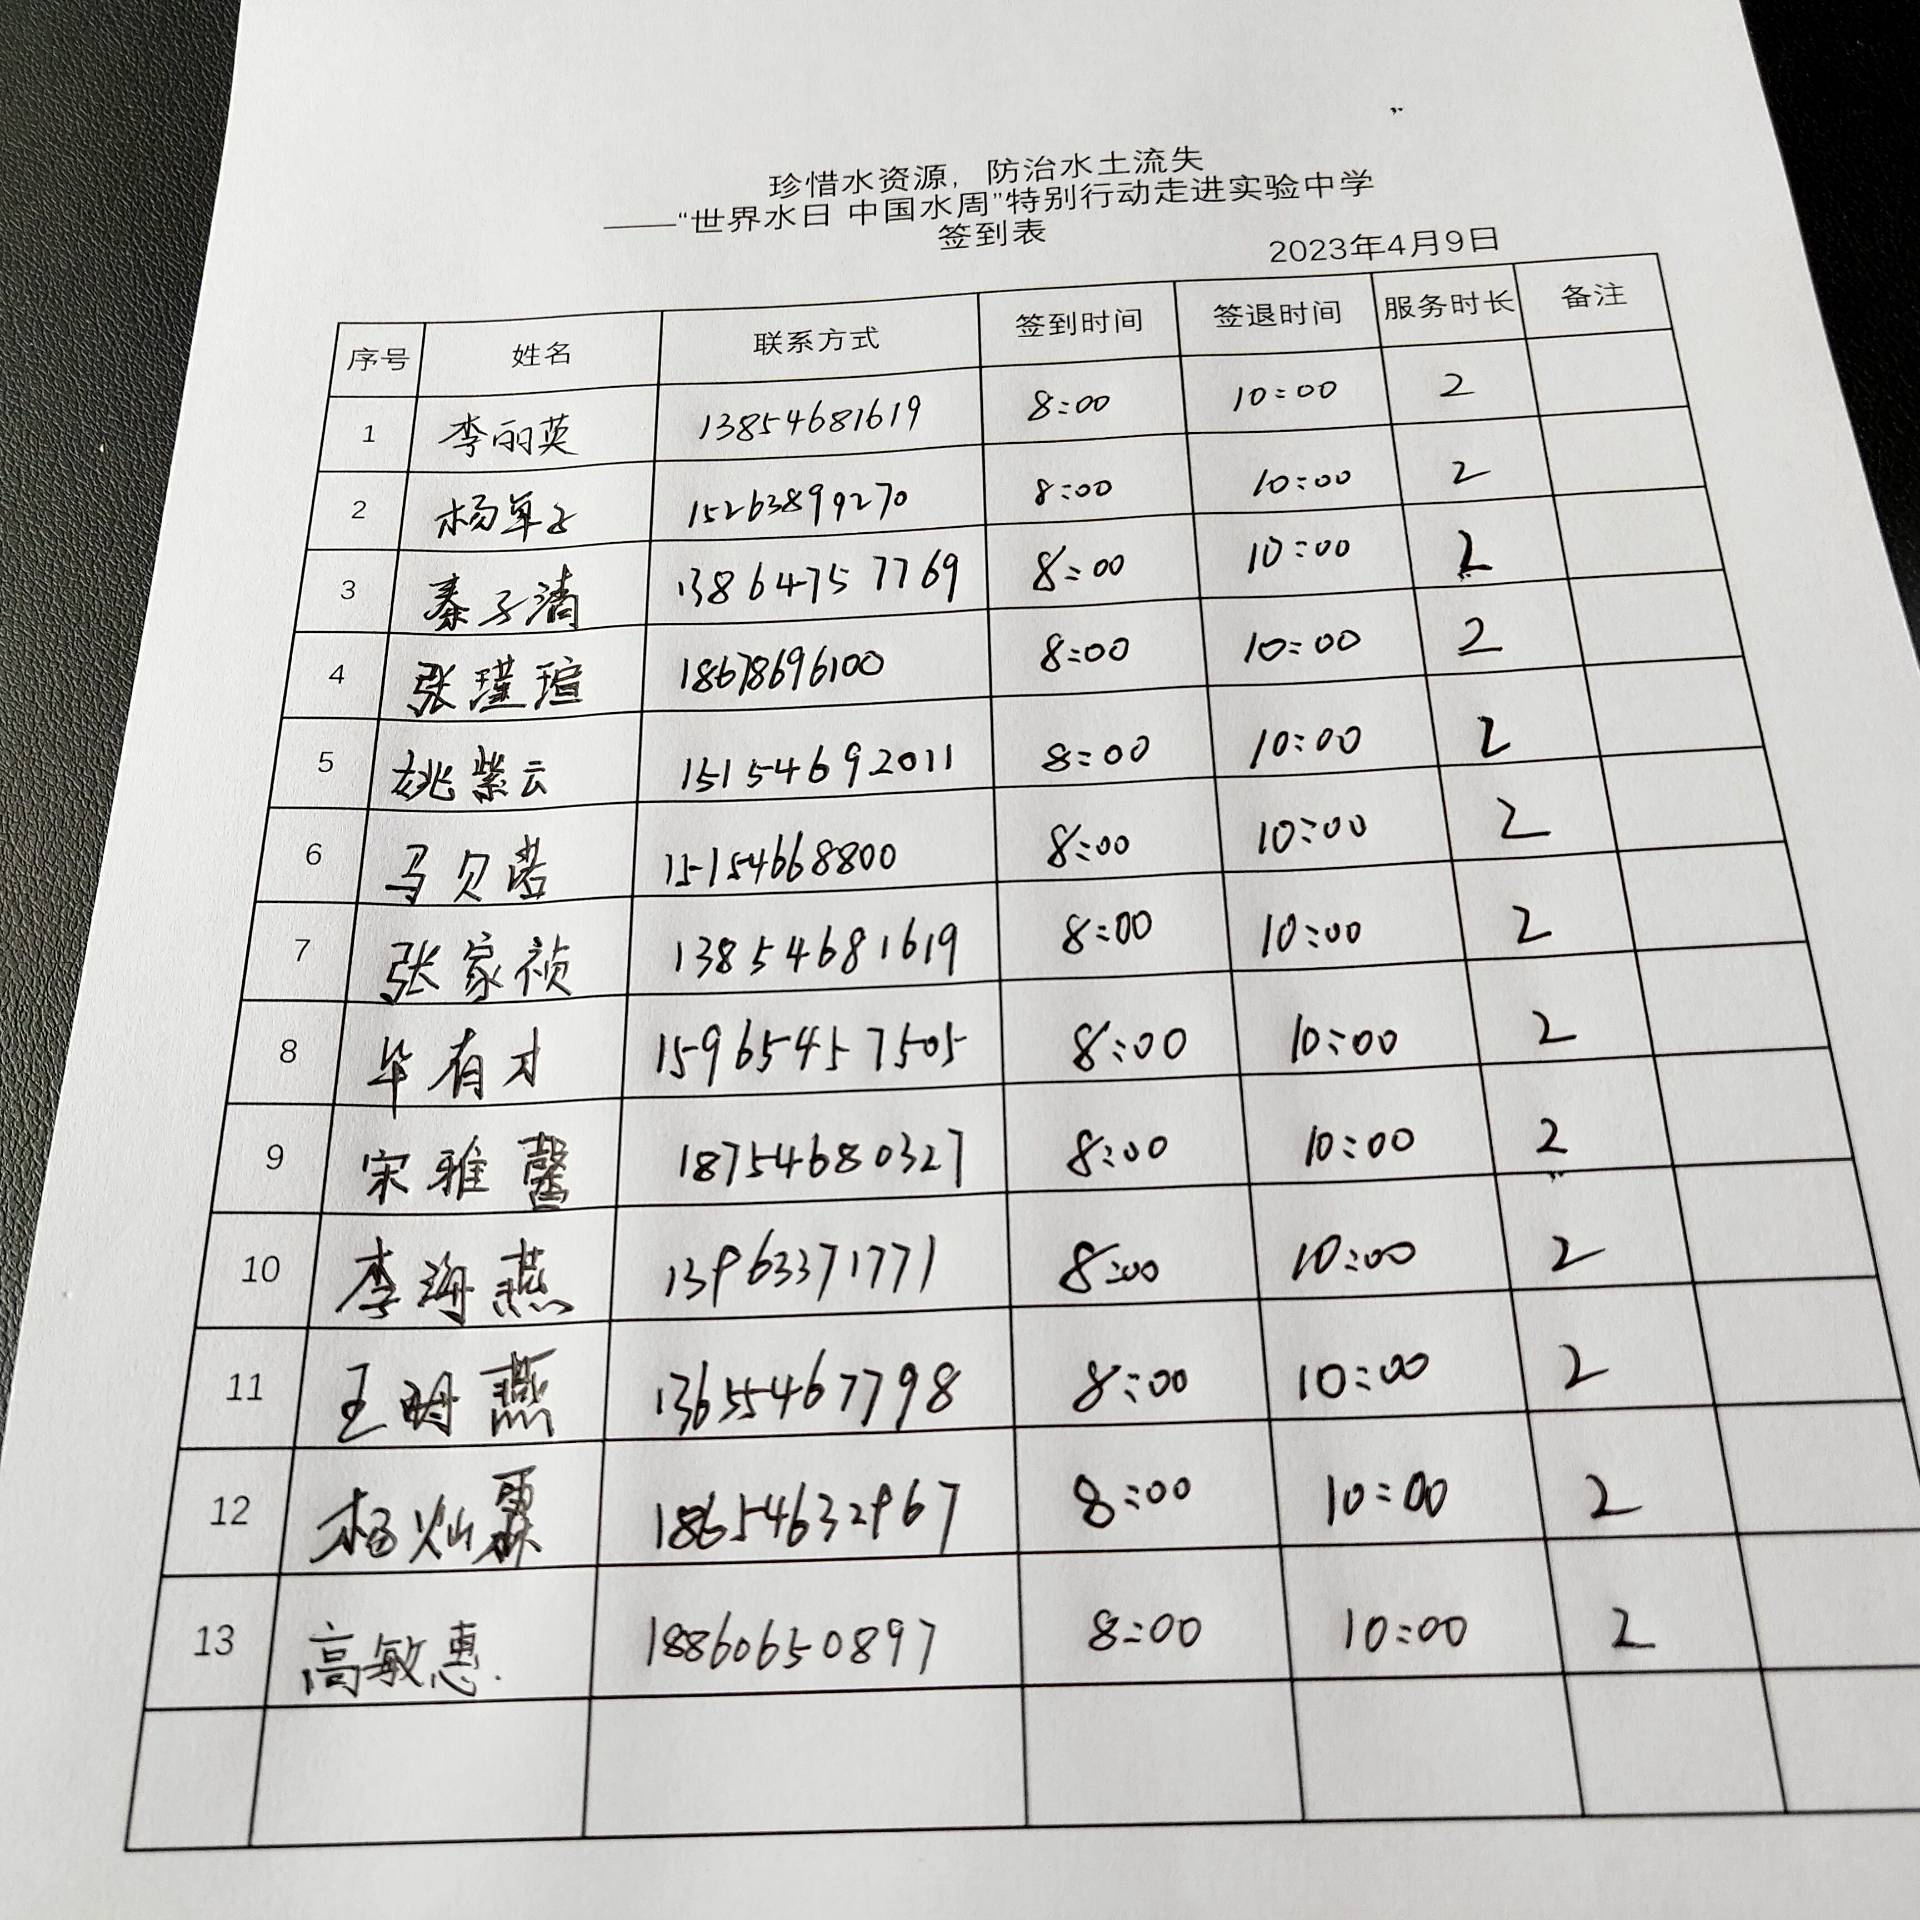 珍惜水资源，防治水土流失
——“世界水日 中国水周”特别行动走进实验中学
签到表
2023年4月9日
序号 姓名 联系方式 签到时间 签退时间 服务时长 备注
1 李丽英 13854681619 8:00 10:00 2
2 15263899270 8:00 10:00 2
3 秦子清 13864757769 8:00 10:00 2
4 张瑾瑄 18678696100 8:00 10:00 2
5 姚紫云 15154692011 8:00 10:00 2
6 马贝诺 15154668800 8:00 10:00 2
7 张家祯 13854681619 8:00 10:00 2
8 毕有才 15965457505 8:00 10:00 2
9 宋雅馨 18754680327 8:00 10:00 2
10 李海燕 13963371771 8:00 10:00 2
11 王明燕 13655467798 8:00 10:00 2
12 杨灿霖 18654632967 8:00 10:00 2
13 高敏惠 18860650897 8:00 10:00 2